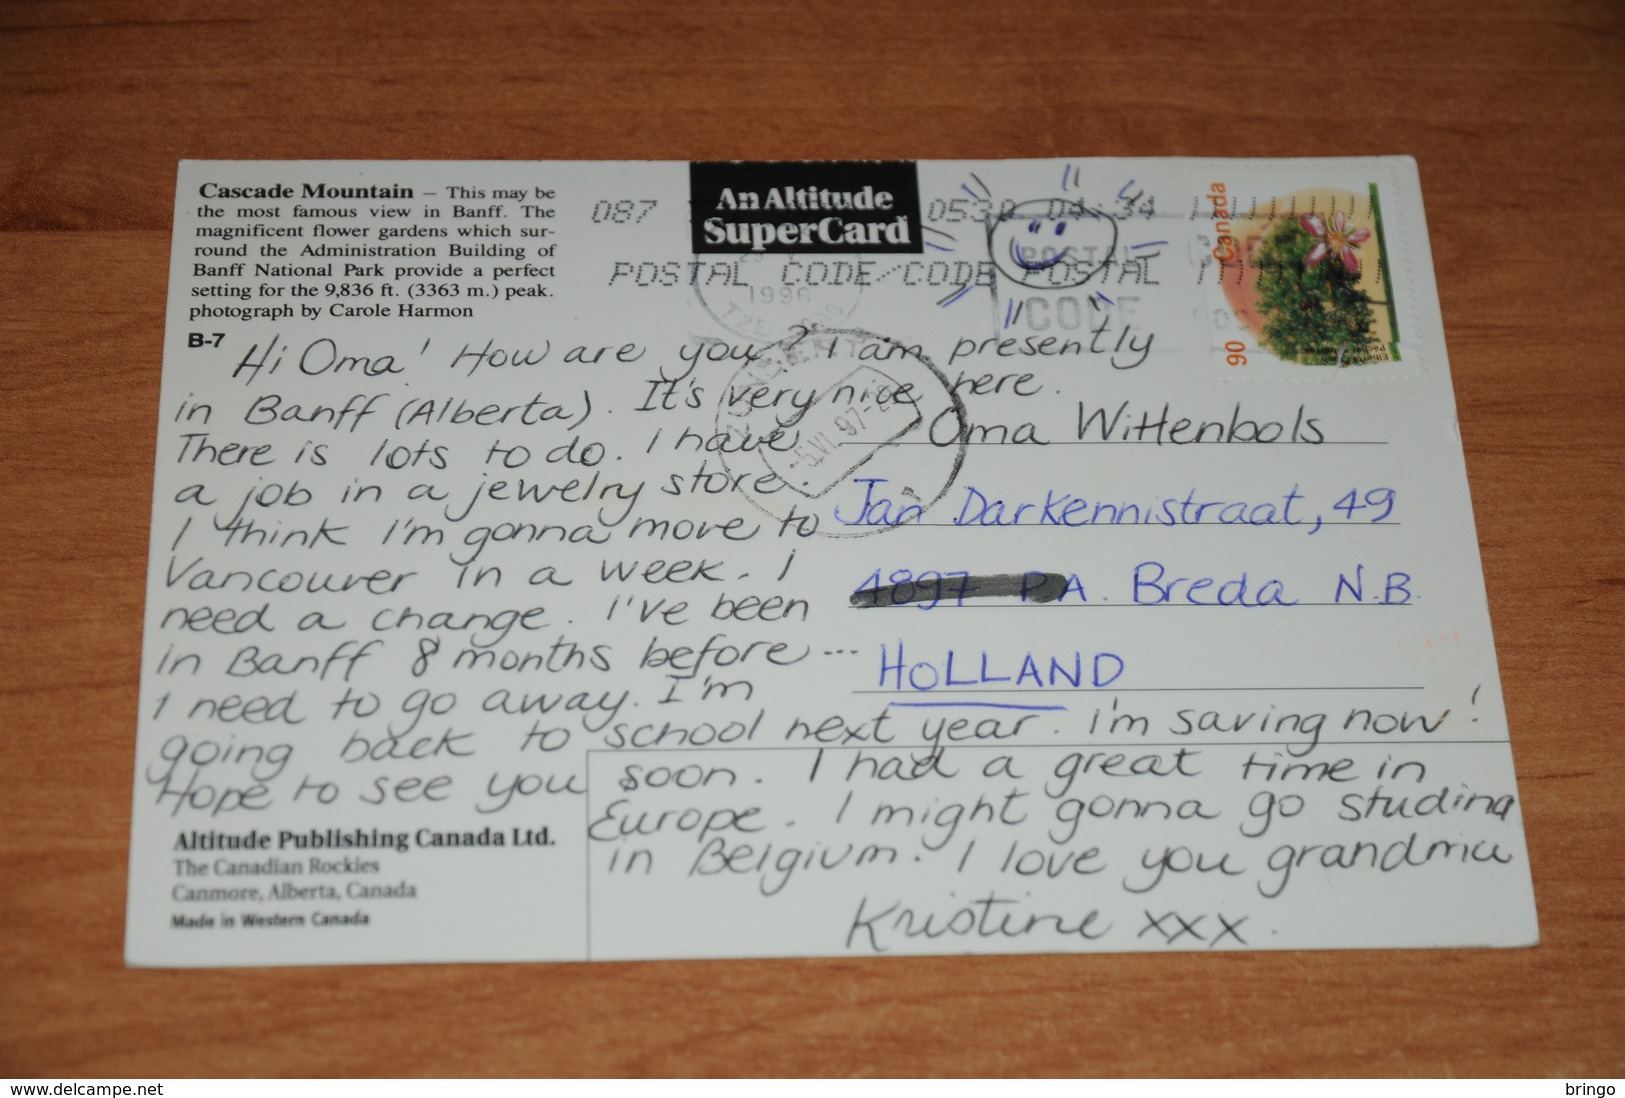 Cascade Mountain – This may be
the most famous view in Banff. The
magnificent flower gardens which sur-
round the Administration Building of
Banff National Park provide a perfect
setting for the 9,836 ft. (3363 m.) peak.
photograph by Carole Harmon
B-7
An Altitude
SuperCard
087 0530 04:34
POSTAL CODE CODE POSTAL
POSTAL
CODE
1996
Canada
90
Hi Oma! How are you? I am presently
in Banff (Alberta). It's very nice here.
There is lots to do. I have
a job in a jewelry store.
I think I'm gonna move to
Vancouver in a week. I
need a change. I've been
in Banff 8 months before...
I need to go away. I'm
going back to school next year. I'm saving now!
Hope to see you soon. I had a great time in
Europe. I might gonna go studing
in Belgium. I love you grandma
Kristine xxx.
Oma Wittenbols
Jan Darkennistraat, 49
4897 PA. Breda N.B.
HOLLAND
Altitude Publishing Canada Ltd.
The Canadian Rockies
Canmore, Alberta, Canada
Made in Western Canada
www.delcampe.net
bringo